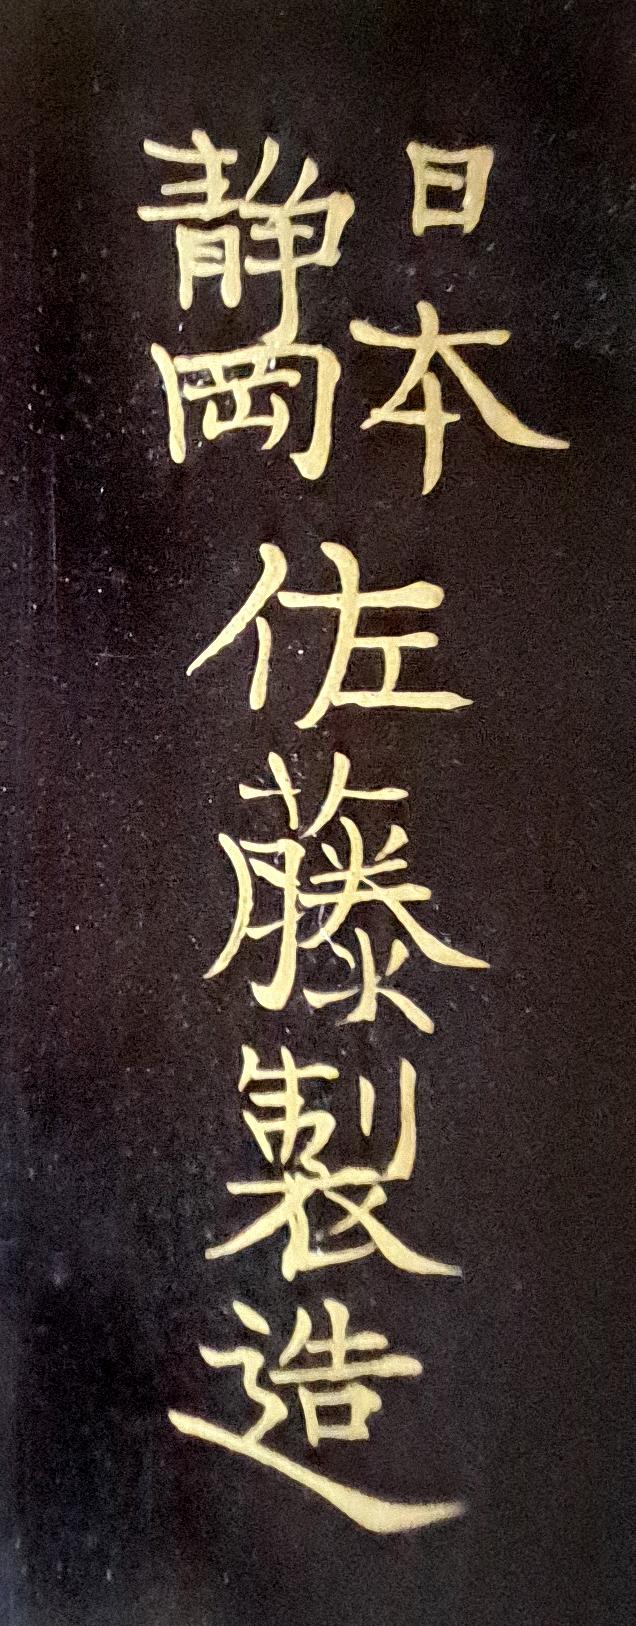 日本
静岡
佐藤製造